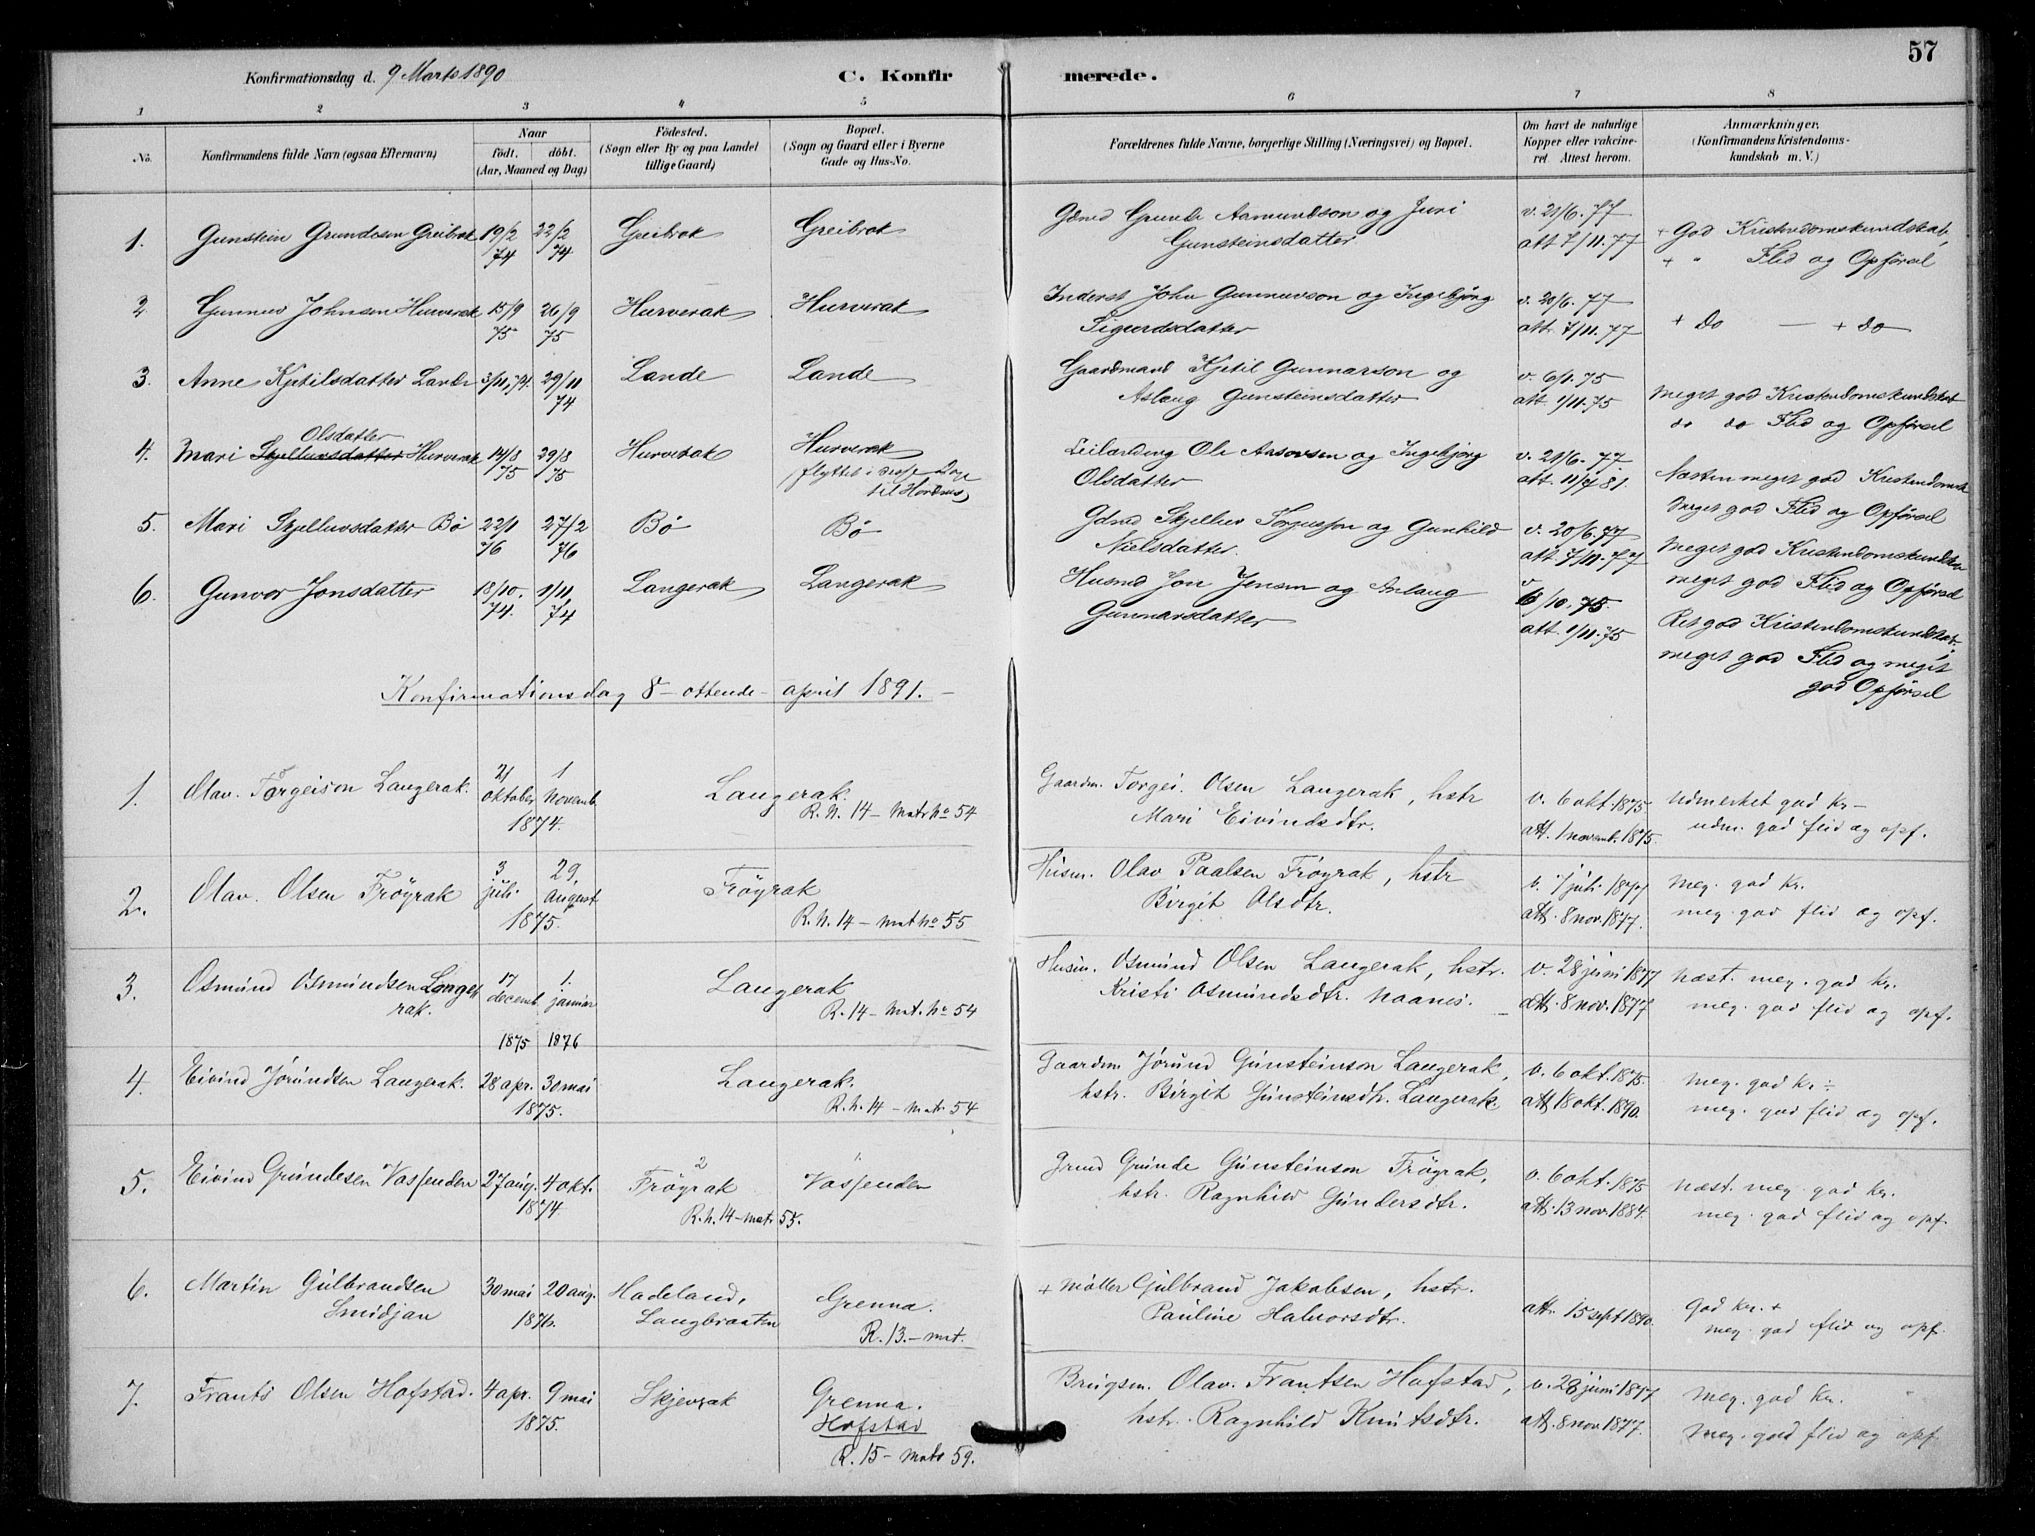 57
Konfirmationsdag d. 9 Marts 1890
C. Konfirmerede.
1 2 3 4 5 6 7 8
No.
Konfirmandens fulde Navn (ogsaa Efternavn)
Naar
födt. döbt.
(Aar, Maaned og Dag)
Födested.
(Sogn eller By og paa Landet
tillige Gaard)
Bopæl.
(Sogn og Gaard eller i Byerne
Gade og Hus-No.
Forældrenes fulde Navne, borgerlige Stilling (Næringsvei) og Bopæl.
Om havt de naturlige
Kopper eller vakcine-
ret. Attest herom.
Anmærkninger.
(Konfirmandens Kristendoms-
kundskab m. V.)
1. Gunstein Grundesen Greibrok 19/2 74 22/2 74 Greibrok Greibrok
Gdmd Grunde Aamundson og Juri
Gunsteinsdatter
v. 21/6. 77
att 7/11. 77
+ God Kristendomskundskab,
+ " Flid og Opførsel
2 Gunnuv Johnsen Hurverak 15/9 75 26/9 75 Hurverak Hurverak
Inderst John Gunnuvson og Ingebjörg
Sigurdsdatter
v. 20/6. 77
att. 7/11. 77
+ do — + do
3. Anne Kjetilsdatter Lande 3/11, 74. 29/11 74 Lande Lande
Gaardmand Kjetil Gunnarson og
Aslaug Gunsteinsdatter
v. 6/1. 75
att. 1/11. 75
Meget god Kristendomskundskab
do do Flid og Opførsel
4. Mari Skjelluvsdatter Olsdatter Hurverak 14/8 75 29/8 75 Hurverak Hurverak
flyttet i disse Dage
til Hordnes
Leilænding Ole Aasovsen og Ingebjörg
Olsdatter
v. 21/6. 77
att. 11/7 81.
Næsten meget god Kristendomsk
Meget god Flid og Opførsel
5. Mari Skjelluvsdatter Bö 22/1 76 27/2 76 Bö Bö
Gdmd Skjelluv Torjusson og Gunhild
Nielsdatter.
v. 20/6. 77
att 7/11. 77
Meget god Kristendomskundskab
meget god Flid og Opførsel
6. Gunvor Jonsdatter 18/10. 74. 1/11 74 Langerak Langerak
Husmd Jon Jensen og Anlaug
Gunnarsdatter
v 6/10. 75.
att. 1/11. 75
Ret god Kristendomskundskab.
meget god Flid og meget
god Opførsel
Konfirmationsdag 8 – ottende – april 1891. –
1. Olav. Torgeison Langerak. 21 oktober 1 novemb. 1874. Langerak.
R. N. 14 – Mats No 54
Gaardm. Torgei. Olsen Langerak, hstr
Mari Eivindsdtr.
v. 6 okt. 1875
att. 1 novemb. 1875.
Udmerket god Kr –
udm. god flid og opf.
2. Olav. Olsen Fröyrak 3 juli 29 august 1875. Fröyrak
R. N. 14 – mat No 55
Husm. Olav Paalsen Fröyrak, hstr
Birgit Olsdtr.
v. 7 juli 1877
att. 8 nov. 1877.
Meg. god Kr.
meg. god flid og opf.
3. Osmund Osmundsen Langerak. 17 decemb. 1875 1. januar 1876 Langerak
R. 14 – Mat. No 54
Husm. Osmund Olsen Langerak, hstr.
Kristi Osmundsdtr. Naanes.
v. 28 juni 1877
att. 8 nov. 1877
næst. meg. god Kr.
meg. god flid og opf.
4. Eivind Jorundsen Langerak. 28 apr. 30 mai 1875. Langerak.
R. N. 14 – Mat. 54
Gaardm Jorund Gunsteinson Langerak,
hstr. Birgit Gunsteinsdtr. Langerak.
v. 6 okt. 1875.
att 18 okt. 1890.
meg. god Kr ÷
meg. god flid og opf.
5. Eivind Grundesen Vassenden 27 aug. 4 okt. 1874. Fröyrak Vassenden
R. N. 14 – mat. 55.
Grmd Grunde Gunsteinson Fröyrak,
hstr. Ragnhild Gundersdtr.
v. 6 okt. 1875
att. 13 nov. 1884.
næst. meg. god Kr.
meg. god flid og opf.
6. Martin Gulbrandsen
Smidjan 30 mai 20 aug. 1876. Hadeland,
Langbraaten Grenna.
R. 13. – mat.
+ Møller Gulbrand Jakobsen, hstr.
Pauline Halvorsdtr.
att. 15 sept 1890.
God Kr. +
meg. god flid og opf.
7. Frants Olsen Hofstad. 4 apr. 9 mai 1875. Skjevrak Grenna.
Hofstad
R. 15 – Mats 59.
Brugsm. Olav. Frantsen Hofstad,
hstr. Ragnhild Knutsdtr.
v. 28 juni 1877
att. 8 nov. 1877.
Meg. god Kr.
Meg. god flid og opf.